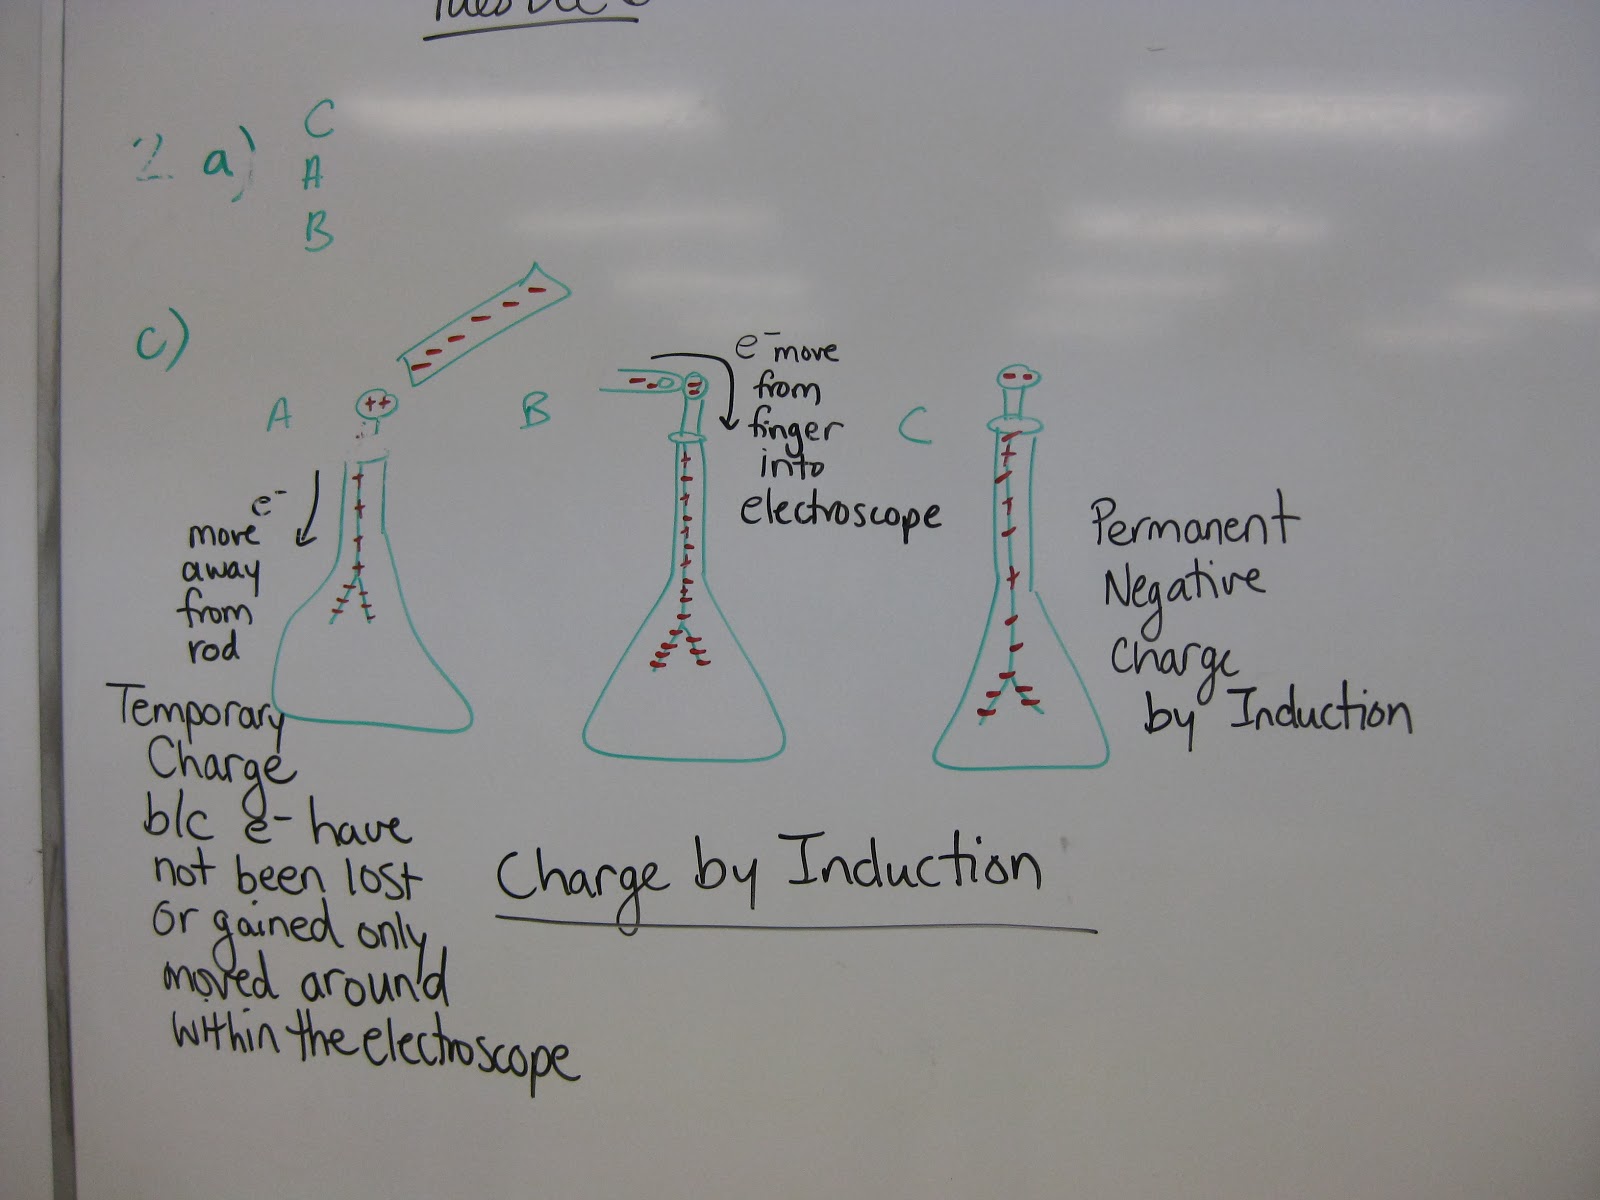 2 a) C
A
B
c)
A
e⁻
move
away
from
rod
Temporary
Charge
b/c e⁻ have
not been lost
or gained only
moved around
within the electroscope
B
e⁻ move
from
finger
into
electroscope
C
Permanent
Negative
Charge
by Induction
Charge by Induction